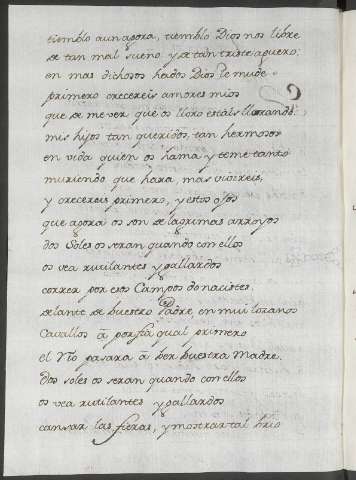 tiemblo aun agora, tiemblo Dios nos libre
de tan mal sueno y de tan triste aguero;
en mas dichosos hados Dios le mude
primero crecereis amores mios
que de me ver que os lloro estais llorando.
mis hijos tan queridos, tan hermosos
en vida quien os hama y teme tanto
muriendo que hara, mas vivireis,
y crecereis primero, y estos ojos
que agora os son de lagrimas arroyos
dos Soles os seran quando con ellos
os vea rutilantes y gallardos
correr por esos Campos do nacistes.
delante de vuestro Padre, en mui lozanos
Cavallos â porfia qual primero
el Rio pasara â ber vuestra Madre.
Dos soles os seran quando con ellos
os vea rutilantes y gallardos
cansar las fieras, y mostrar tal brio